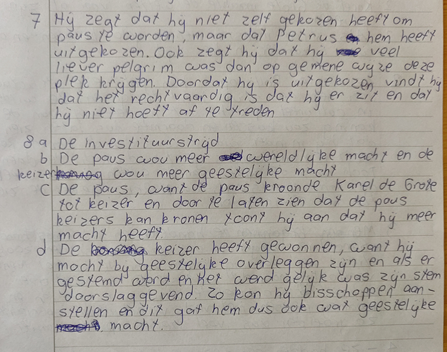 7 Hij zegt dat hij niet zelf gekozen heeft om
paus te worden, maar dat Petrus hem heeft
uitgekozen. Ook zegt hij dat hij veel
liever pelgrim was dan op gemene wijze deze
plek krijgen. Doordat hij is uitgekozen vindt hij
dat het rechtvaardig is dat hij er zit en dat
hij niet hoeft af te treden
8a De Investituurstrijd
b De paus wou meer wereldlijke macht en de
keizer wou meer geestelijke macht
c De paus, want de paus kroonde Karel de Grote
tot keizer en door te laten zien dat de paus
keizers kan kronen toont hij aan dat hij meer
macht heeft
d De keizer heeft gewonnen, want hij
mocht bij geestelijke overleggen zijn en als er
gestemd werd en het werd gelijk was zijn stem
doorslaggevend. Zo kon hij bisschoppen aan-
stellen en dit gaf hem dus ook wat geestelijke
macht.